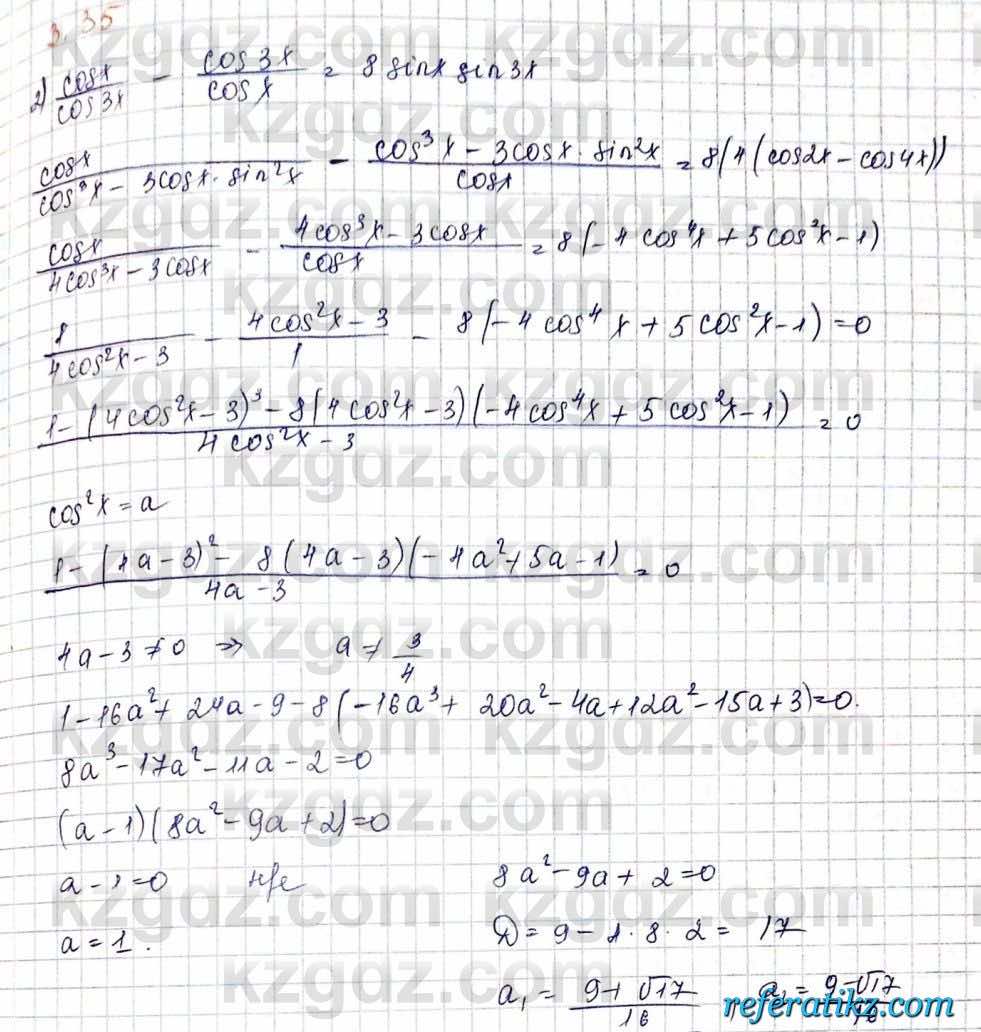 3.35
2) cosx/cos3x - cos3x/cosx = 8 sinx sin3x
cosx/(cos³x - 3cosx · sin²x) - (cos³x - 3cosx · sin²x)/cosx = 8(4(cos2x - cos4x))
cosx/(4cos³x - 3cosx) - (4cos³x - 3cosx)/cosx = 8(-4cos⁴x + 5cos²x - 1)
1/(4cos²x - 3) - (4cos²x - 3)/1 - 8(-4cos⁴x + 5cos²x - 1) = 0
(1 - (4cos²x - 3)² - 8(4cos²x - 3)(-4cos⁴x + 5cos²x - 1))/(4cos²x - 3) = 0
cos²x = a
(1 - (4a - 3)² - 8(4a - 3)(-4a² + 5a - 1))/(4a - 3) = 0
4a - 3 ≠ 0 ⇒ a ≠ 3/4
1 - 16a² + 24a - 9 - 8(-16a³ + 20a² - 4a + 12a² - 15a + 3) = 0.
8a³ - 17a² - 11a - 2 = 0
(a - 1)(8a² - 9a + 2) = 0
a - 1 = 0 н/е 8a² - 9a + 2 = 0
a = 1. D = 9 - 4 · 8 · 2 = 17
a₁ = (9 + √17)/16 a₂ = (9 - √17)/16
kzgdz.com
referatikz.com